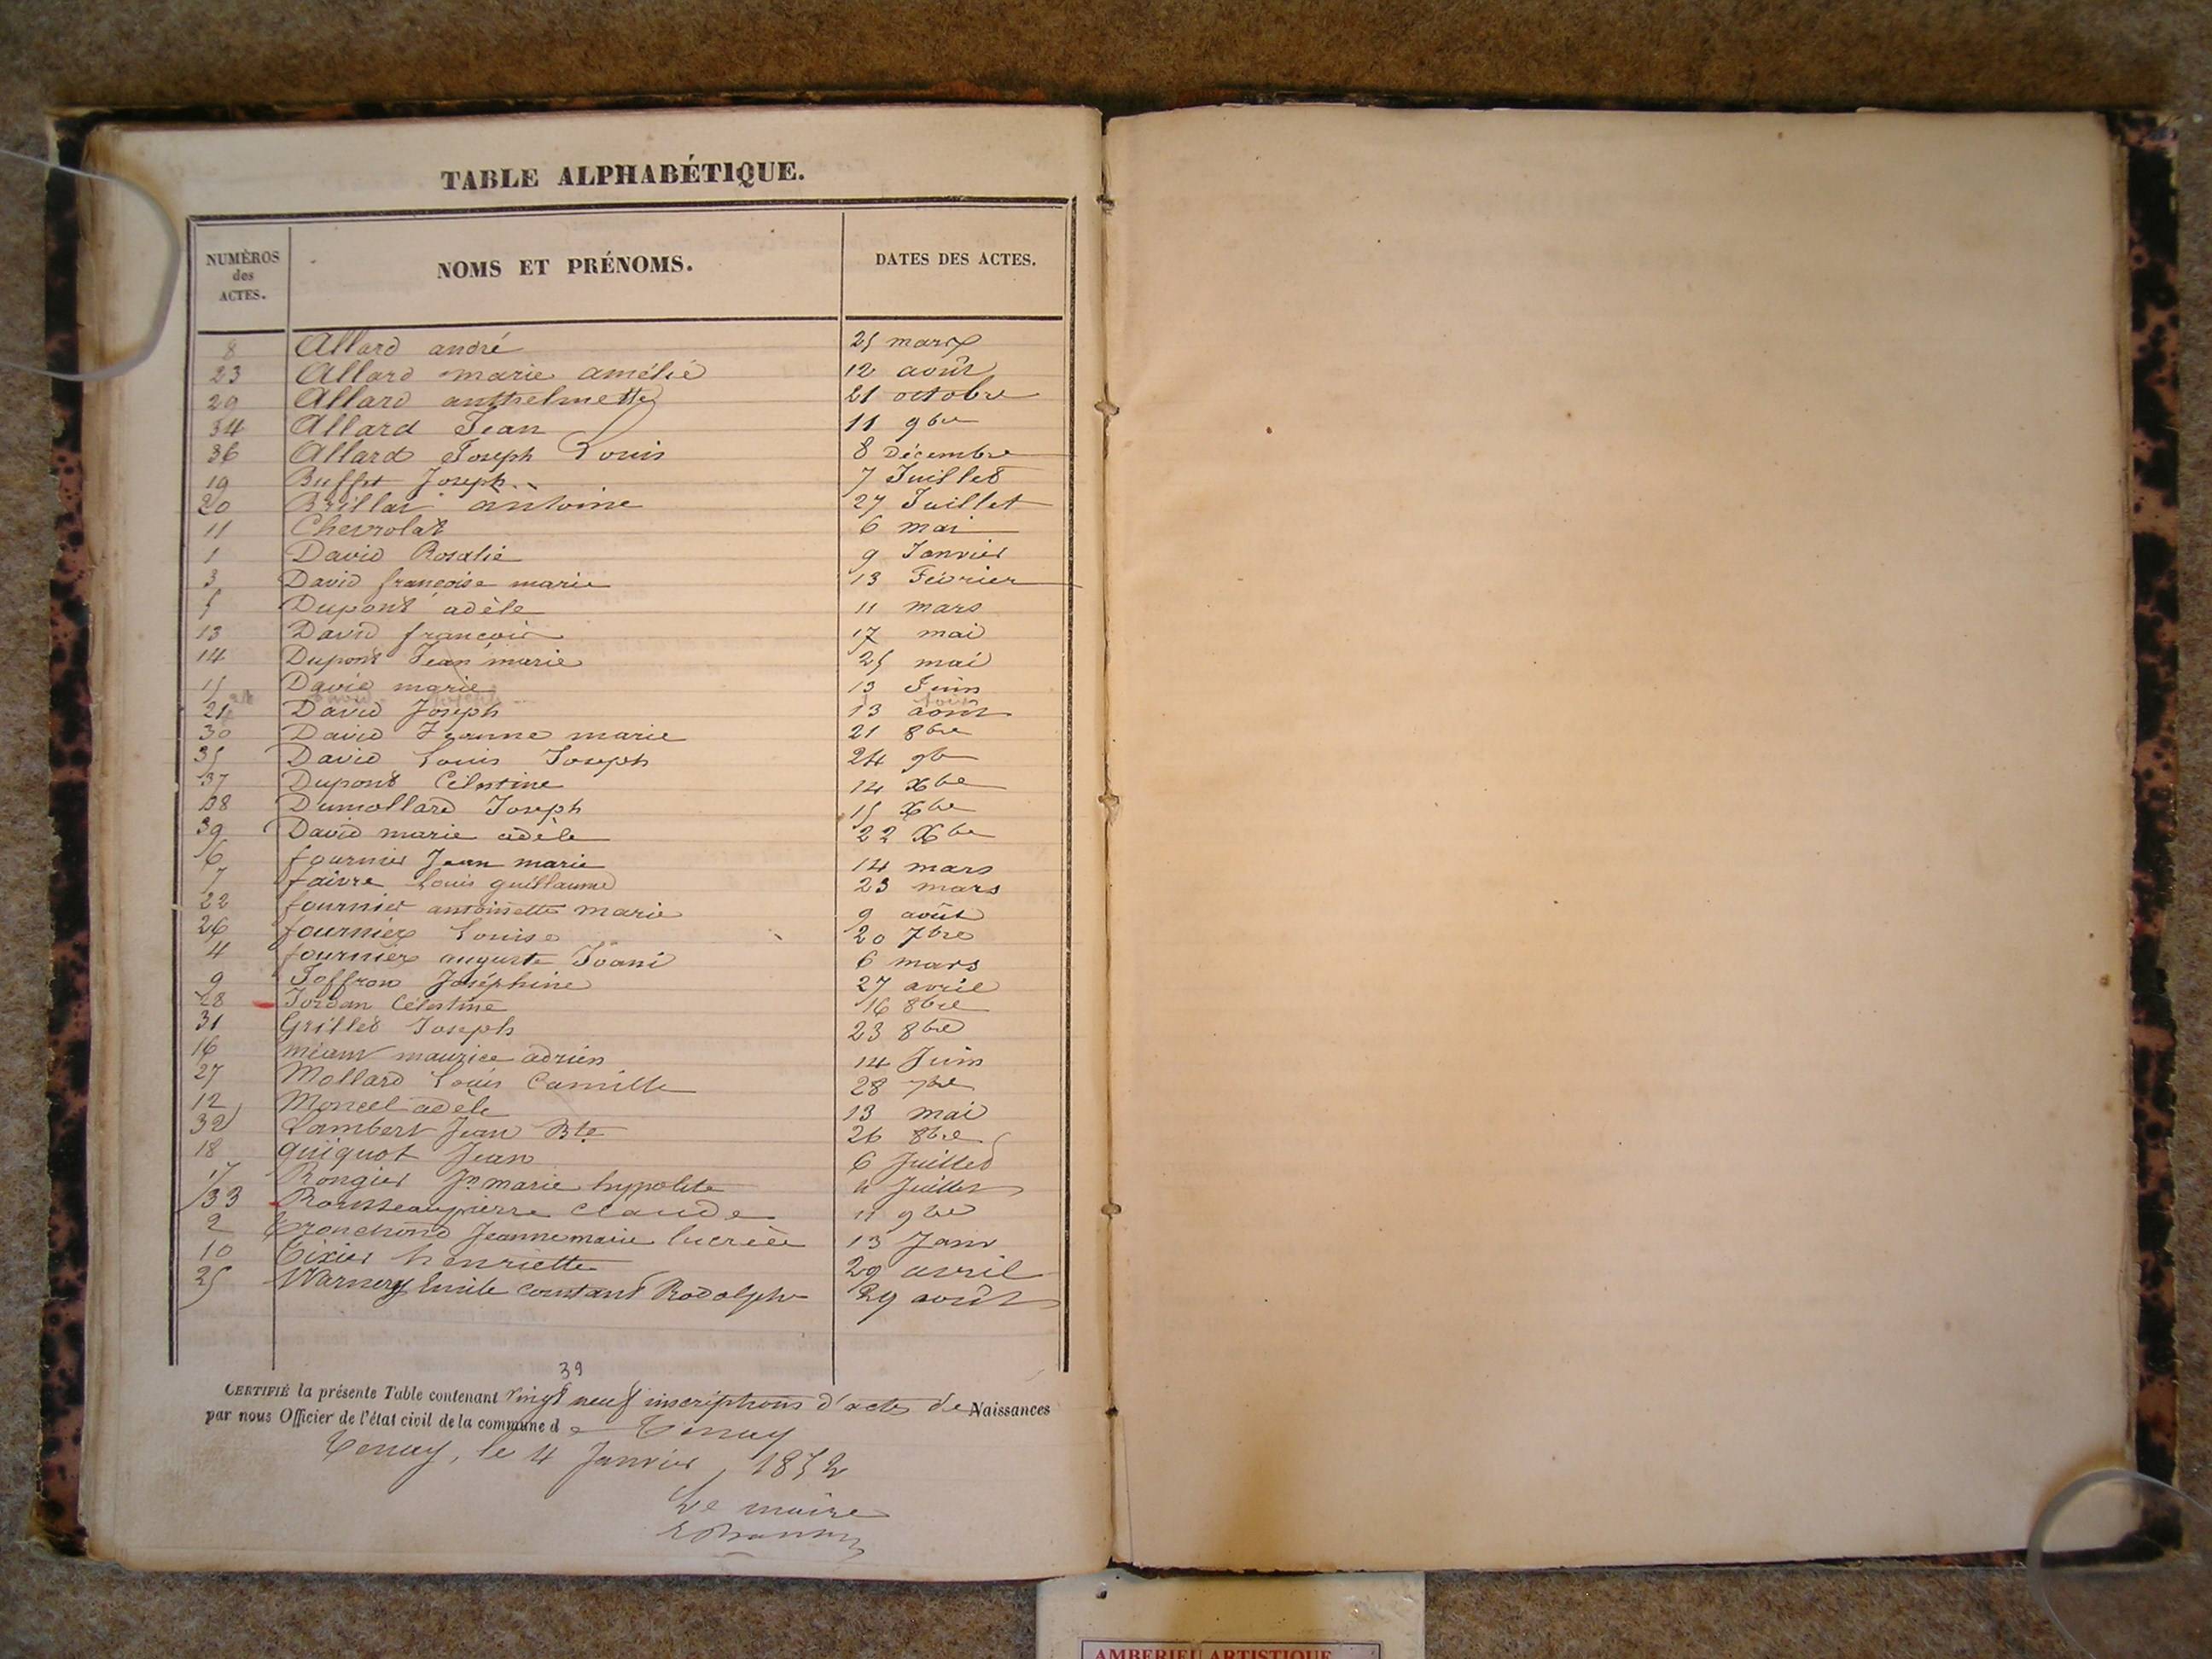 TABLE ALPHABÉTIQUE.
NUMÉROS des ACTES. NOMS ET PRÉNOMS. DATES DES ACTES.
8 Allard andré 25 mars
23 Allard marie amélié 12 août
29 Allard anthelmette 21 octobre
34 Allard Jean 11 9bre
36 Allard Joseph Louis 8 Décembre
19 Buffet Joseph 7 Juillet
20 Brillat antoine 27 Juillet
11 Chevrolat 6 mai
1 David Rosalie 9 Janvier
3 David françoise marie 13 Février
5 Dupont adèle 11 mars
13 David françois 17 mai
14 Dupont Jean marie 25 mai
15 David marie 13 Juin
21 David Joseph 13 août
30 David Jeanne marie 21 8bre
35 David Louis Joseph 24 9b
37 Dupont Célestine 14 Xbre
38 Dumollard Joseph 15 Xbre
39 David marie adèle 22 Xbre
6 fournier Jean marie 14 mars
7 faivre Louis guillaume 23 mars
22 fournier antoinette marie 9 août
26 fournier Louise 20 7bre
4 fournier auguste Joani 6 mars
9 Joffron Joséphine 27 avril
28 Jordan Célestine 16 8bre
31 Grillet Joseph 23 8bre
16 maurice adrien 14 Juin
27 Mollard Louis Camille 28 7bre
12 Moncel adèle 13 mai
32 Lambert Jean Bte 26 8bre
18 quiquot Jean 6 Juillet
17 Rongier Jn marie hypolite 4 Juillet
33 Rousseau pierre claude 11 9bre
2 Tronchond Jeanne marie 13 Janv
10 Tixier henriette 29 avril
25 Warnery Emile Constant Rodolphe 29 août
39
CERTIFIÉ la présente Table contenant vingt neuf inscriptions d'actes de Naissances
par nous Officier de l'état civil de la commune de Tenay
Tenay, le 4 Janvier 1872
Le maire
AMBERIEU ARTISTIQUE